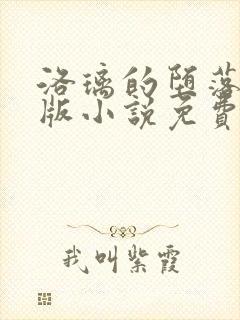 洛璃的堕落
版小説免費
我叫紫霞